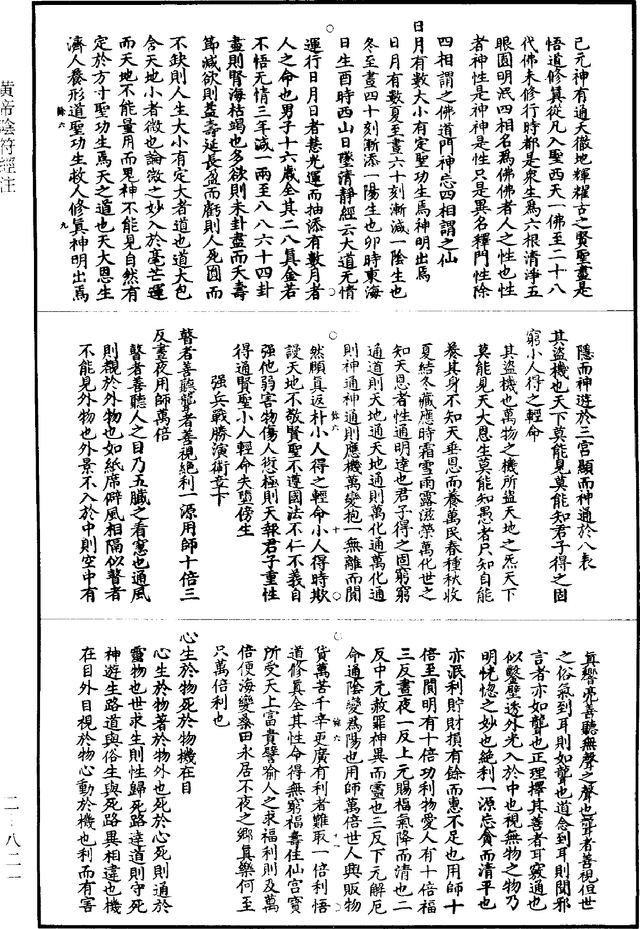 黃帝陰符經注
已元神有通天徹地輝耀古之賢聖盡是
悟道修真從凡入聖西天一佛至二十八
代佛未修行時都是衆生爲六根清淨五
眼圓明泯四相名爲佛佛者人之性也性
者神性是神神是性只是異名釋門性除
四相謂之佛道門神忘四相謂之仙
日月有數大小有定聖功生焉神明出焉
日月有數夏至晝六十刻漸減一陰生也
冬至晝四十刻漸添一陽生也卯時東海
日生酉時西山日墜清靜經云大道无情
運行日月日者慧光運而抽添有數月者
人之命也男子十六歲全其二八真金若
不悟无情三年減一兩至八八六十四卦
盡則腎海枯竭也多欲則未卦盡而夭壽
節減欲則益壽延長盈而虧則人死圓而
不缺則人生大小有定大者道也道大包
含天地小者微也論微之妙入於毫芒運
而天地不能量用而鬼神不能見自然有
定於方寸聖功生焉天之道也天大恩生
濟人養形道聖功生救人修真神明出焉
餘六 九
隱而神遊於三宮顯而神通於八表
其盜機也天下莫能見莫能知君子得之固
窮小人得之輕命
其盜機也萬物之機所盜天地之炁天下
莫能見天大恩生莫能知愚者只知自能
養其身不知天垂恩而養萬民春種秋收
夏結冬藏應時霜雪雨露滋榮萬化世之
知天恩者性通明達也君子得之固窮窮
通道則天地通天地通則萬化通萬化通
則神通神通則應機萬變抱一無離而閑
然頤真返朴小人得之輕命小人得時欺
餘六 十
謾天地不敬賢聖不遵國法不仁不義自
強他弱害物傷人愆極則天報君子重性
得通賢聖小人輕命失墮傍生
強兵戰勝演術章下
瞽者善聽聾者善視絕利一源用師十倍三
反晝夜用師萬倍
瞽者善聽人之目乃五臟之看窻也通風
則觀於外物也如紙席僻風相隔似瞽者
不能見外物也外景不入於中則空中有
真響亮善聽無聲之聲也聾者善視但世
之俗氣到耳則如聾也道念到耳則聞邪
言者亦如聾也正理擇其善者耳竅通也
似鑿壁透外光入於中也視無物之物乃
明恍惚之妙也絕利一源忘貪而清平也
亦泯利貯財損有餘而惠不足也用師十
倍至閒明有十倍功利物愛人有十倍福
三反晝夜一反上元賜福氣降而清也二
反中元赦罪神異而靈也三反下元解厄
命通陰變爲陽也用師萬倍世人與販物
貨萬苦千辛更廣有利者難取一倍利悟
餘六 十一
道修真全其性命得無窮福壽住仙宮寶
所受天上富貴譬喻人之求福利則及萬
倍便海變桑田永居不夜之鄉真樂何至
只萬倍利也
心生於物死於物機在目
心生於物著於物外也死於心死則通於
靈物也世求生則性歸死路達道則守死
神遊生路道與俗生與死路異相違也機
在目外目視於物心動於機也利而有害
二–八二一